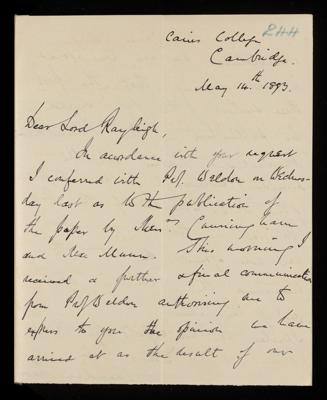 244
Caius College
Cambridge.
May 14th 1893.
Dear Lord Rayleigh,
In accordance with your request
I conferred with Prof. Weldon on Wednes-
day last as to the publication of
the paper by Messrs Cunningham
and MacMunn. This morning I
received a further & final communication
from Prof Weldon authorising me to
express to you the opinion we have
arrived at as the result of our